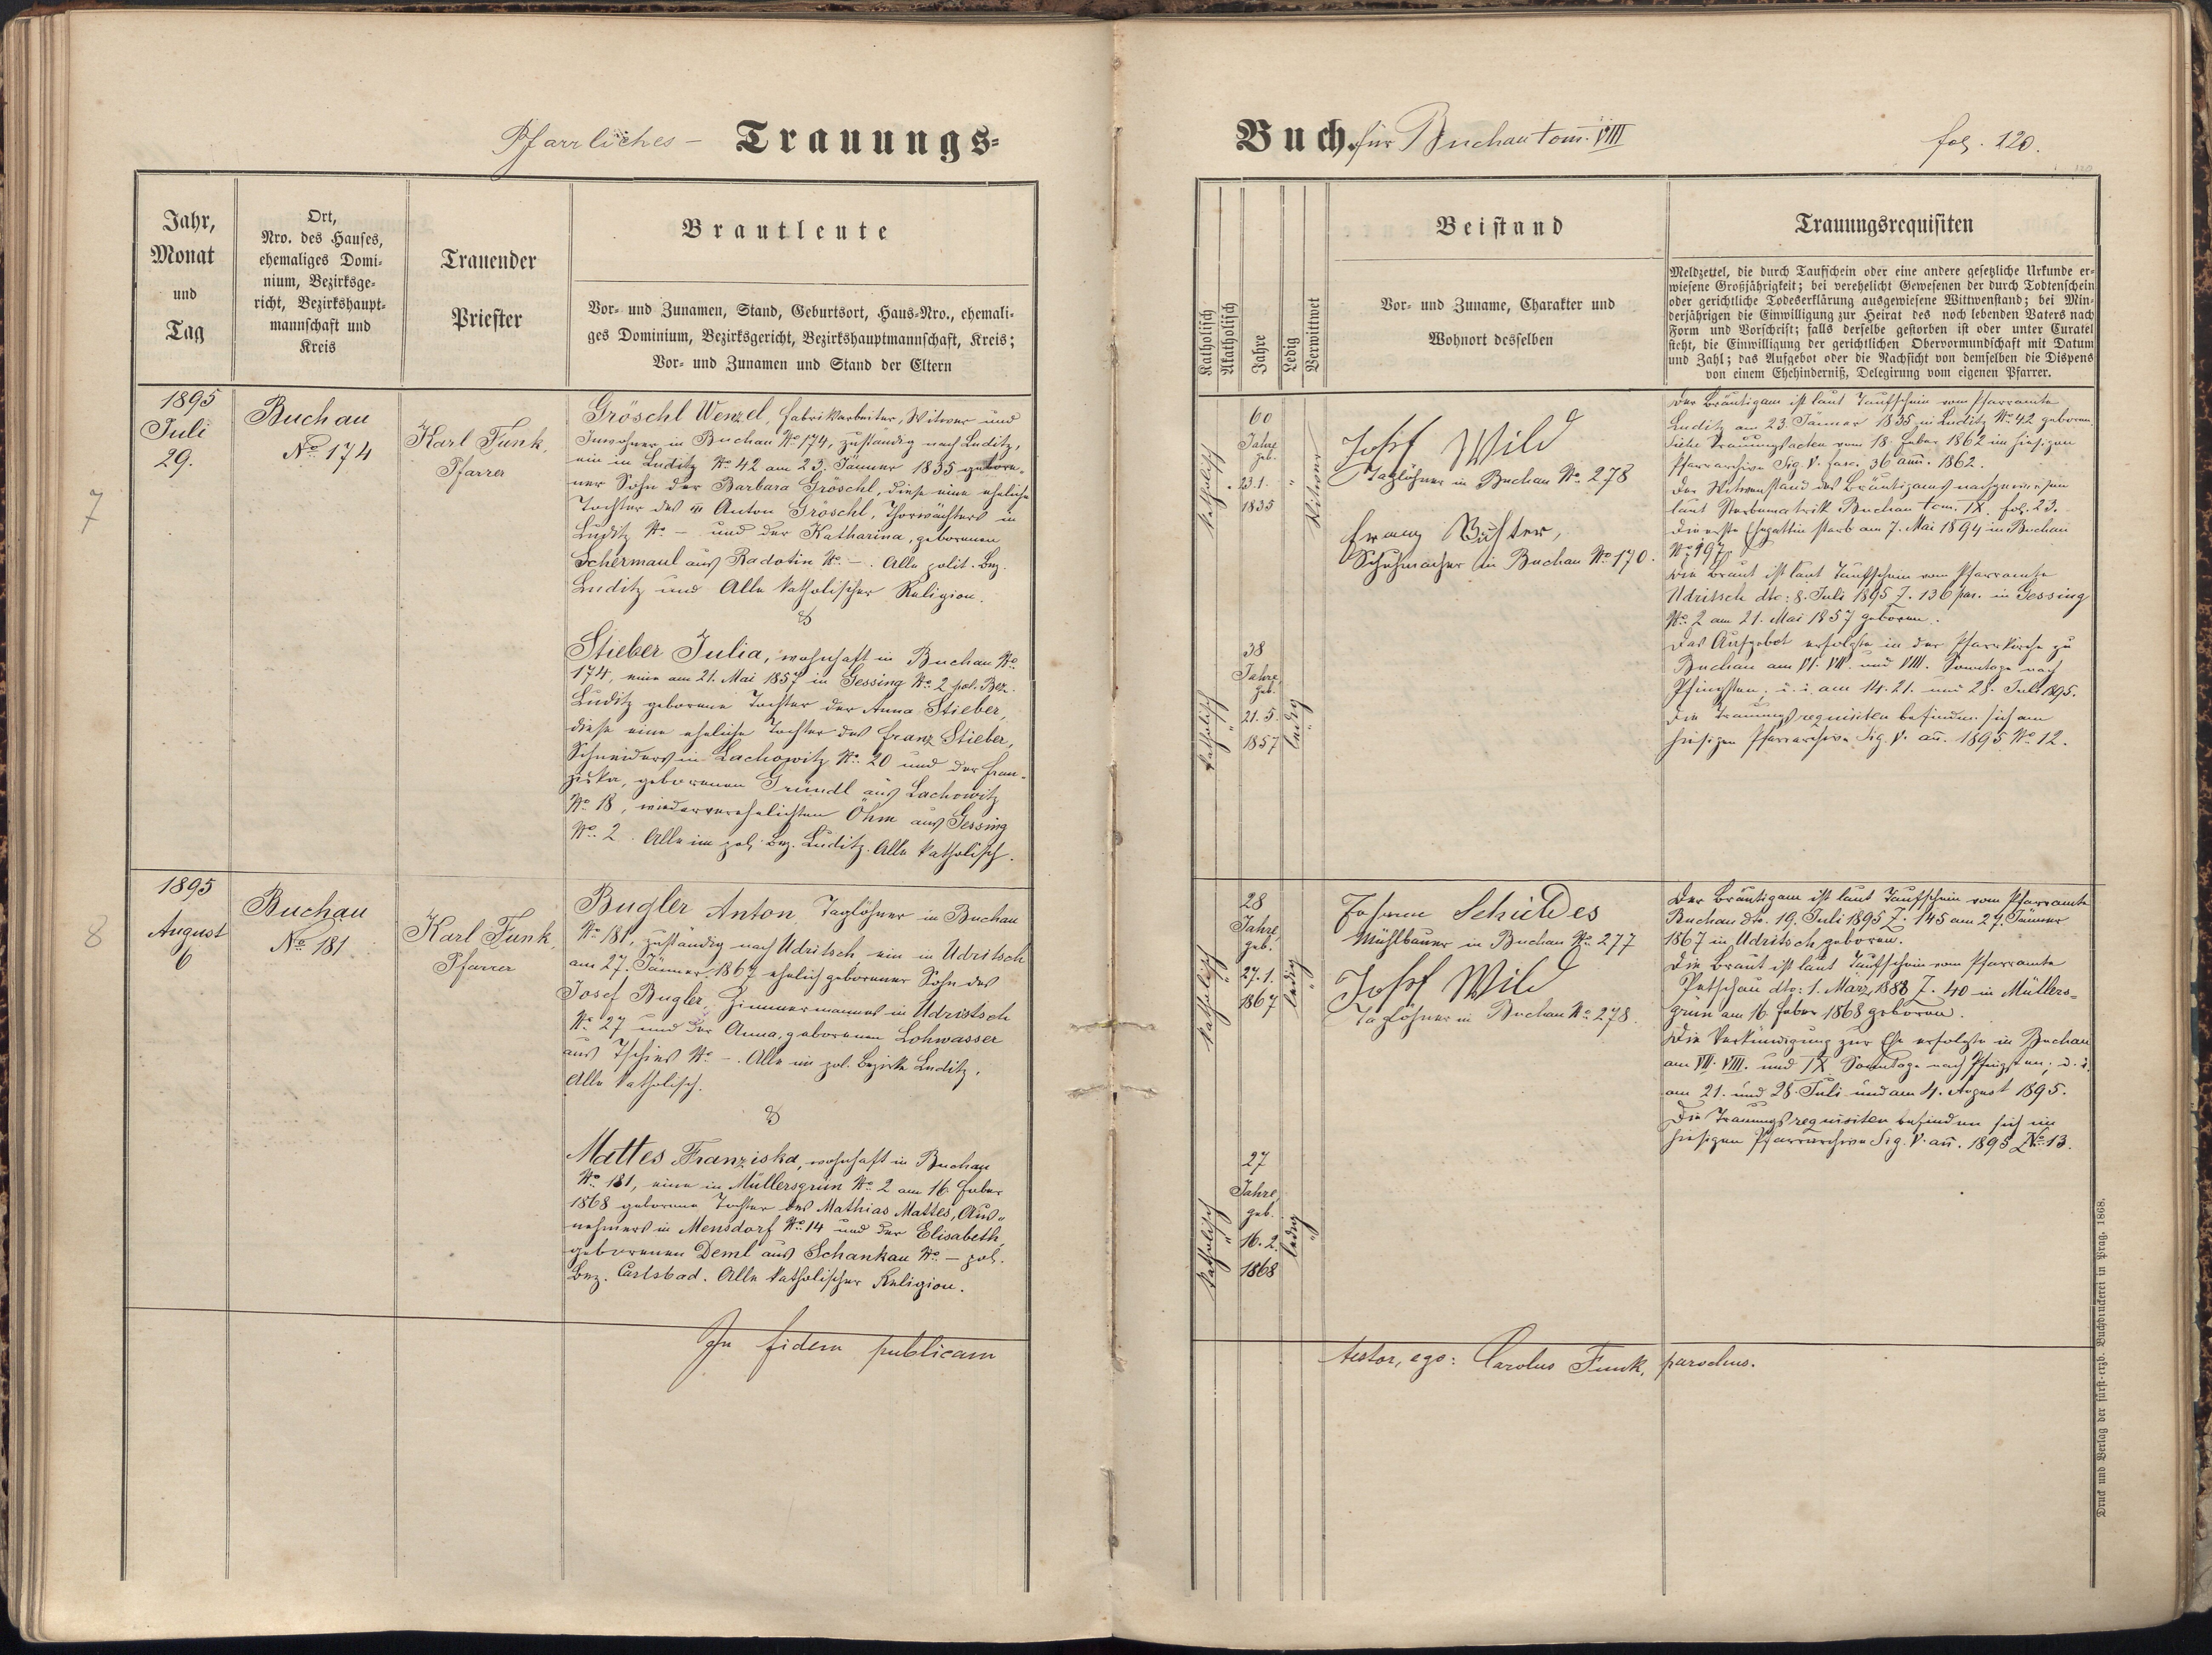 Pfarrliches - Trauungs-
Buch. für Buchau tom. VIII
fol. 120.
120
Jahr,
Monat
und
Tag
Ort,
Nro. des Hauses,
ehemaliges Domi-
nium, Bezirksge-
richt, Bezirkshaupt-
mannschaft und
Kreis
Trauender
Priester
Brautleute
Vor- und Zunamen, Stand, Geburtsort, Haus-Nro., ehemali-
ges Dominium, Bezirksgericht, Bezirkshauptmannschaft, Kreis;
Vor- und Zunamen und Stand der Eltern
Katholisch
Akatholisch
Jahre
Ledig
Verwittwet
Beistand
Vor- und Zuname, Charakter und
Wohnort desselben
Trauungsrequisiten
Meldzettel, die durch Taufschein oder eine andere gesetzliche Urkunde er-
wiesene Großjährigkeit; bei verehelicht Gewesenen der durch Todtenschein
oder gerichtliche Todeserklärung ausgewiesene Wittwenstand; bei Min-
derjährigen die Einwilligung zur Heirat des noch lebenden Vaters nach
Form und Vorschrift; falls derselbe gestorben ist oder unter Curatel
steht, die Einwilligung der gerichtlichen Obervormundschaft mit Datum
und Zahl; das Aufgebot oder die Nachsicht von demselben die Dispens
von einem Ehehinderniß, Delegirung vom eigenen Pfarrer.
7
1895
Juli
29.
Buchau
No. 174
Karl Funk,
Pfarrer
Gröschl Wenzel, Fabrikarbeiter, Witwer und
Inwohner in Buchau No. 174, zuständig nach Luditz,
ein in Luditz No. 42 am 23. Jänner 1835 gebore-
ner Sohn der Barbara Gröschl, diese eine eheliche
Tochter des Anton Gröschl, Thorwächters in
Luditz No. - und der Katharina, geborenen
Schermaul aus Radotin No. -. Alle polit. Bez.
Luditz und Alle katholischer Religion.
&
Stieber Julia, wohnhaft in Buchau No.
174, eine am 21. Mai 1857 in Gessing No. 2 pol. Bez.
Luditz geborene Tochter der Anna Stieber,
diese eine eheliche Tochter des Franz Stieber,
Schneiders in Lachowitz No. 20 und der Fran-
ziska, geborenen Gründl aus Lachowitz
No. 18, wiederverehelichten Öhm aus Gessing
No. 2. Alle im pol. Bez. Luditz. Alle katholisch.
katholisch
60
Jahre
geb.
23.1.
1835
"
Witwer
Josef Wild
Taglöhner in Buchau No. 278
Franz
Schuhmacher in Buchau No. 170.
katholisch
"
38
Jahre,
geb.
21. 5.
1857
ledig
"
Der Bräutigam ist laut Taufschein vom Pfarramte
Luditz am 23. Jänner 1835 in Luditz No. 42 geboren
Siehe Trauungsacten vom 18. Feber 1862 im hiesigen
Pfarrarchive Sig. V. fasc. 36 ann. 1862.
Der Witwenstand des Bräutigams nachgewiesen
laut Sterbematrik Buchau tom. IX. fol. 23.
Die erste Ehegattin starb am 7. Mai 1894 in Buchau
No. 197.
Die Braut ist laut Taufschein vom Pfarramte
Udritsch dto: 8. Juli 1895 Z. 136 par. in Gessing
No. 2 am 21. Mai 1857 geboren.
Das Aufgebot erfolgte in der Pfarrkirche zu
Buchau am VI. VII. und VIII. Sonntage nach
Pfingsten, d. i. am 14. 21. und 28. Juli 1895.
Die Trauungsrequisiten befinden sich am
hiesigen Pfarrarchive Sig. V. an. 1895 No. 12.
8
1895
August
6
Buchau
No. 181
Karl Funk,
Pfarrer
Bugler Anton Taglöhner in Buchau
No. 181, zuständig nach Udritsch ein in Udritsch
am 27. Jänner 1867 ehelich geborener Sohn des
Josef Bugler, Zimmermannes in Udristsch
No. 27 und der Anna, geborenen Lohwasser
aus Tschies No. -. Alle im pol. Bezirke Luditz.
Alle katholisch.
&
Mattes Franziska, wohnhaft in Buchau
No. 181, eine in Müllersgrün No. 2 am 16. Feber
1868 geborene Tochter des Mathias Mattes, Aus-
nehmers in Mensdorf No. 14 und der Elisabeth,
geborenen Deml aus Schankau No. - pol.
Bez. Carlsbad. Alle katholischer Religion.
katholisch
"
28
Jahre,
geb.
27. 1.
1867
ledig
"
Johann Schildes
Mühlbauer in Buchau No. 277
Josef Wild
Taglöhner in Buchau No. 278.
katholisch
"
27
Jahre,
geb.
16. 2.
1868
ledig
"
Der Bräutigam ist laut Taufschein vom Pfarramte
Buchau dto. 19. Juli 1895 Z. 145 am 27. Jänner
1867 in Udritsch geboren.
Die Braut ist laut Taufschein vom Pfarramte
Petschau dto: 1. März 1888 Z. 40 in Müllers-
grün am 16. Feber 1868 geboren.
Die Verkündigung zur Ehe erfolgte in Buchau
am VII. VIII. und IX. Sonntage nach Pfingsten, d. i.
am 21. und 28. Juli und am 4. August 1895.
Die Trauungsrequisiten befinden sich im
hiesigen Pfarrarchive Sig. V. an. 1895 No. 13.
In fidem publicam
testor, ego: Carolus Funk, parochus.
Druck und Verlag der fürst-erzb. Buchdruckerei in Prag. 1868.